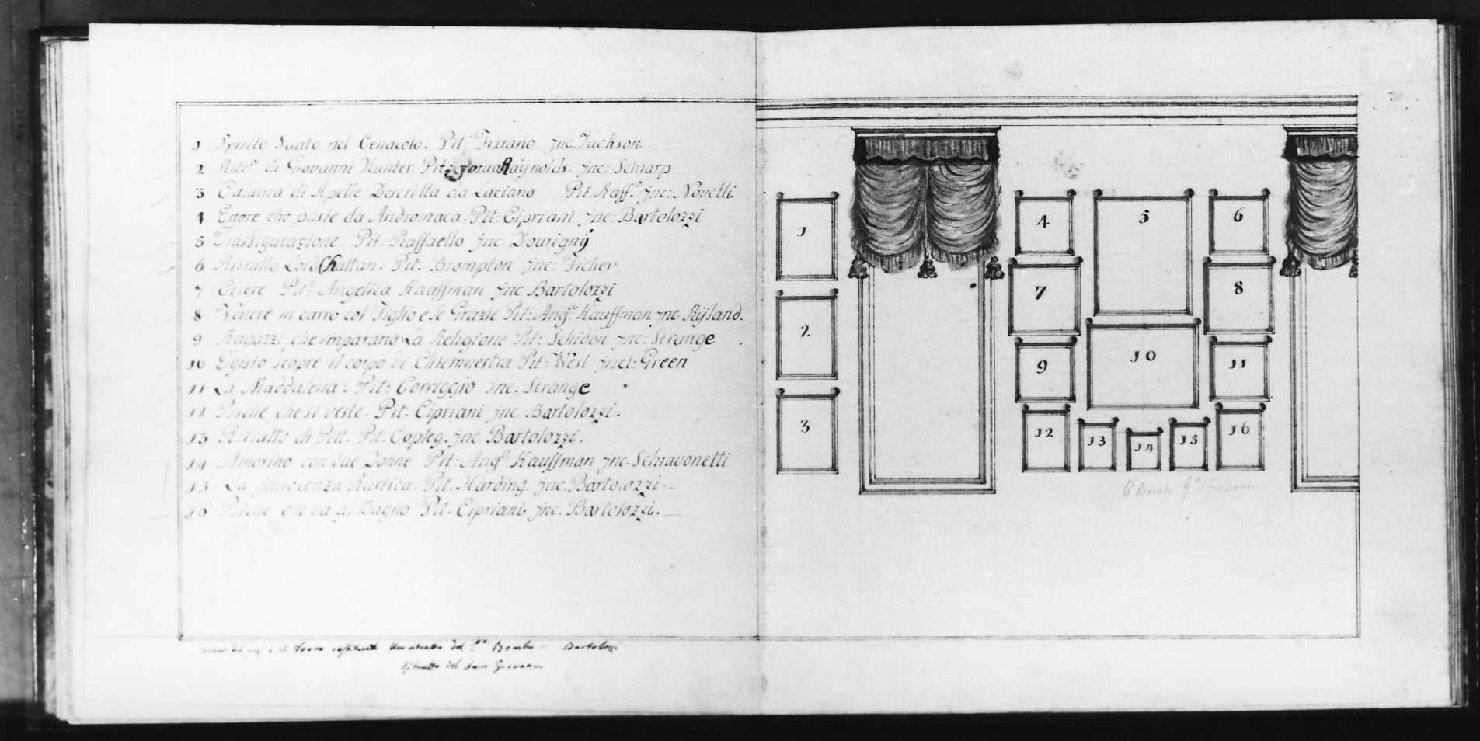 1 Spirito Santo nel Cenacolo. Pit: Tiziano Inc. Jachson
2 Rito. di Giovanni Hunter. Pit: Josua Raynolds. Inc: Scharp
3 Calunia di Apelle Descritta da Luciano Pit: Raff. Inc: Novelli
4 Ettore che parte da Andromaca. Pit. Cipriani Inc: Bartolozzi
5 Trasfigurazione. Pit. Raffaello Inc. Dourigny
6 Ritratto Lord Chattan. Pit. Brompton Inc: Ficher
7 Pit: Angelica Kauffman Inc Bartolozzi
8 Venere in carro col Figlio e le Grazie Pit: Ang. Kauffman Inc Rijland.
9 Ragazzi, che imparano La Religione Pit: Schidon Inc: Strange
10 Egisto scopre il corpo di Clitemnestra Pit: West Inci: Green
11 La Maddalena. Pit: Correggio Inc. Strange
12 Psiche che si veste. Pit. Cipriani Inc. Bartolozzi.
13 Ritratto di Pitt. Pit. Copleg. Inc. Bartolozzi.
14 Amorino con due Donne Pit: Ang. Kauffman Inc. Schiavonetti
15 La Innocenza Rustica. Pit. Harding. Inc. Bartolozzi.
16 Psiche che va al Bagno Pit. Cipriani Inc. Bartolozzi.
del Bembo - Bartolozzi
Ritratto del San Giovanni
4 5 6
1
7 8
2
9 10 11
3
12 13 14 15 16
Bembo